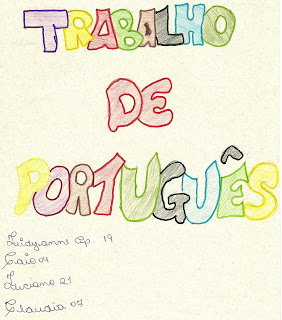 TRABALHO
DE
PORTUGUÊS
Leidyanne Ap. 19
Caio 04
Luciano 21
Claudia 07